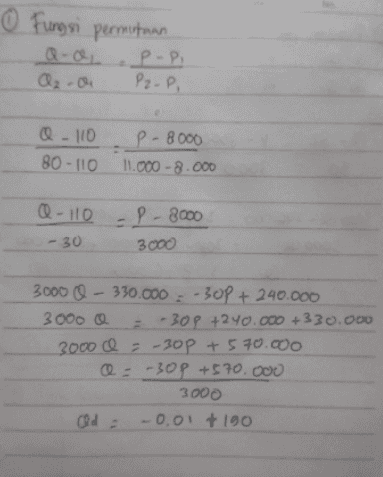 ① Fungsi permutaan
Q - Q₁ = P - P₁
Q₂ - Q₁ P₂ - P₁
Q - 110 = P - 8000
80 - 110 11.000 - 8.000
Q - 110 = P - 8000
- 30 3000
3000 Q - 330.000 = -30P + 240.000
3000 Q = -30P + 240.000 + 330.000
3000 Q = -30P + 570.000
Q = -30P + 570.000
3000
Qd = -0,01 + 190